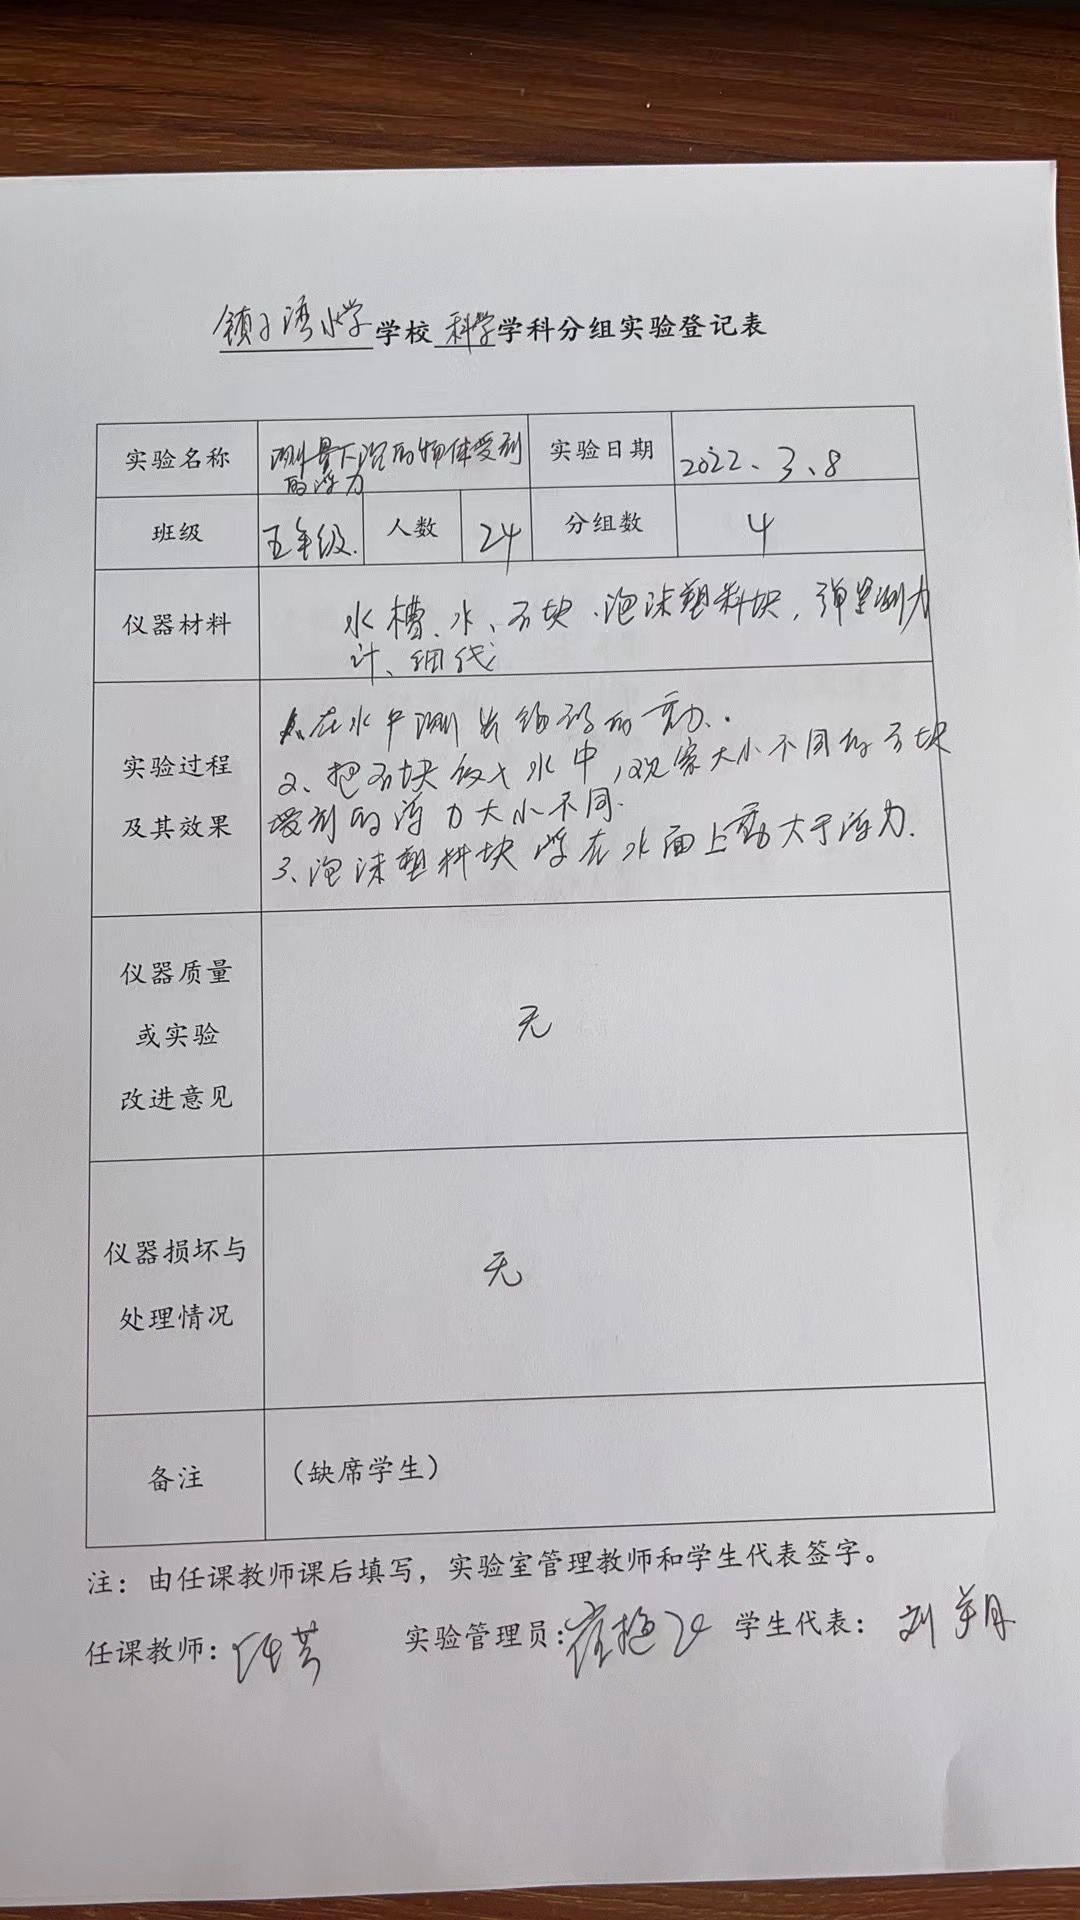 镇子湾小学学校科学学科分组实验登记表
实验名称 测量下沉的物体受到的浮力 实验日期 2022、3、8
班级 五年级. 人数 24 分组数 4
仪器材料 水槽、水、石块、泡沫塑料块,弹簧测力
计、细线
实验过程
及其效果
1、在水中测出钩码的重力.
2、把石块放入水中,观察大小不同的石块
受到的浮力大小不同.
3、泡沫塑料块浮在水面上重力大于浮力.
仪器质量
或实验
改进意见
无
仪器损坏与
处理情况
无
备注 (缺席学生)
注:由任课教师课后填写,实验室管理教师和学生代表签字。
任课教师: 实验管理员: 学生代表: 刘